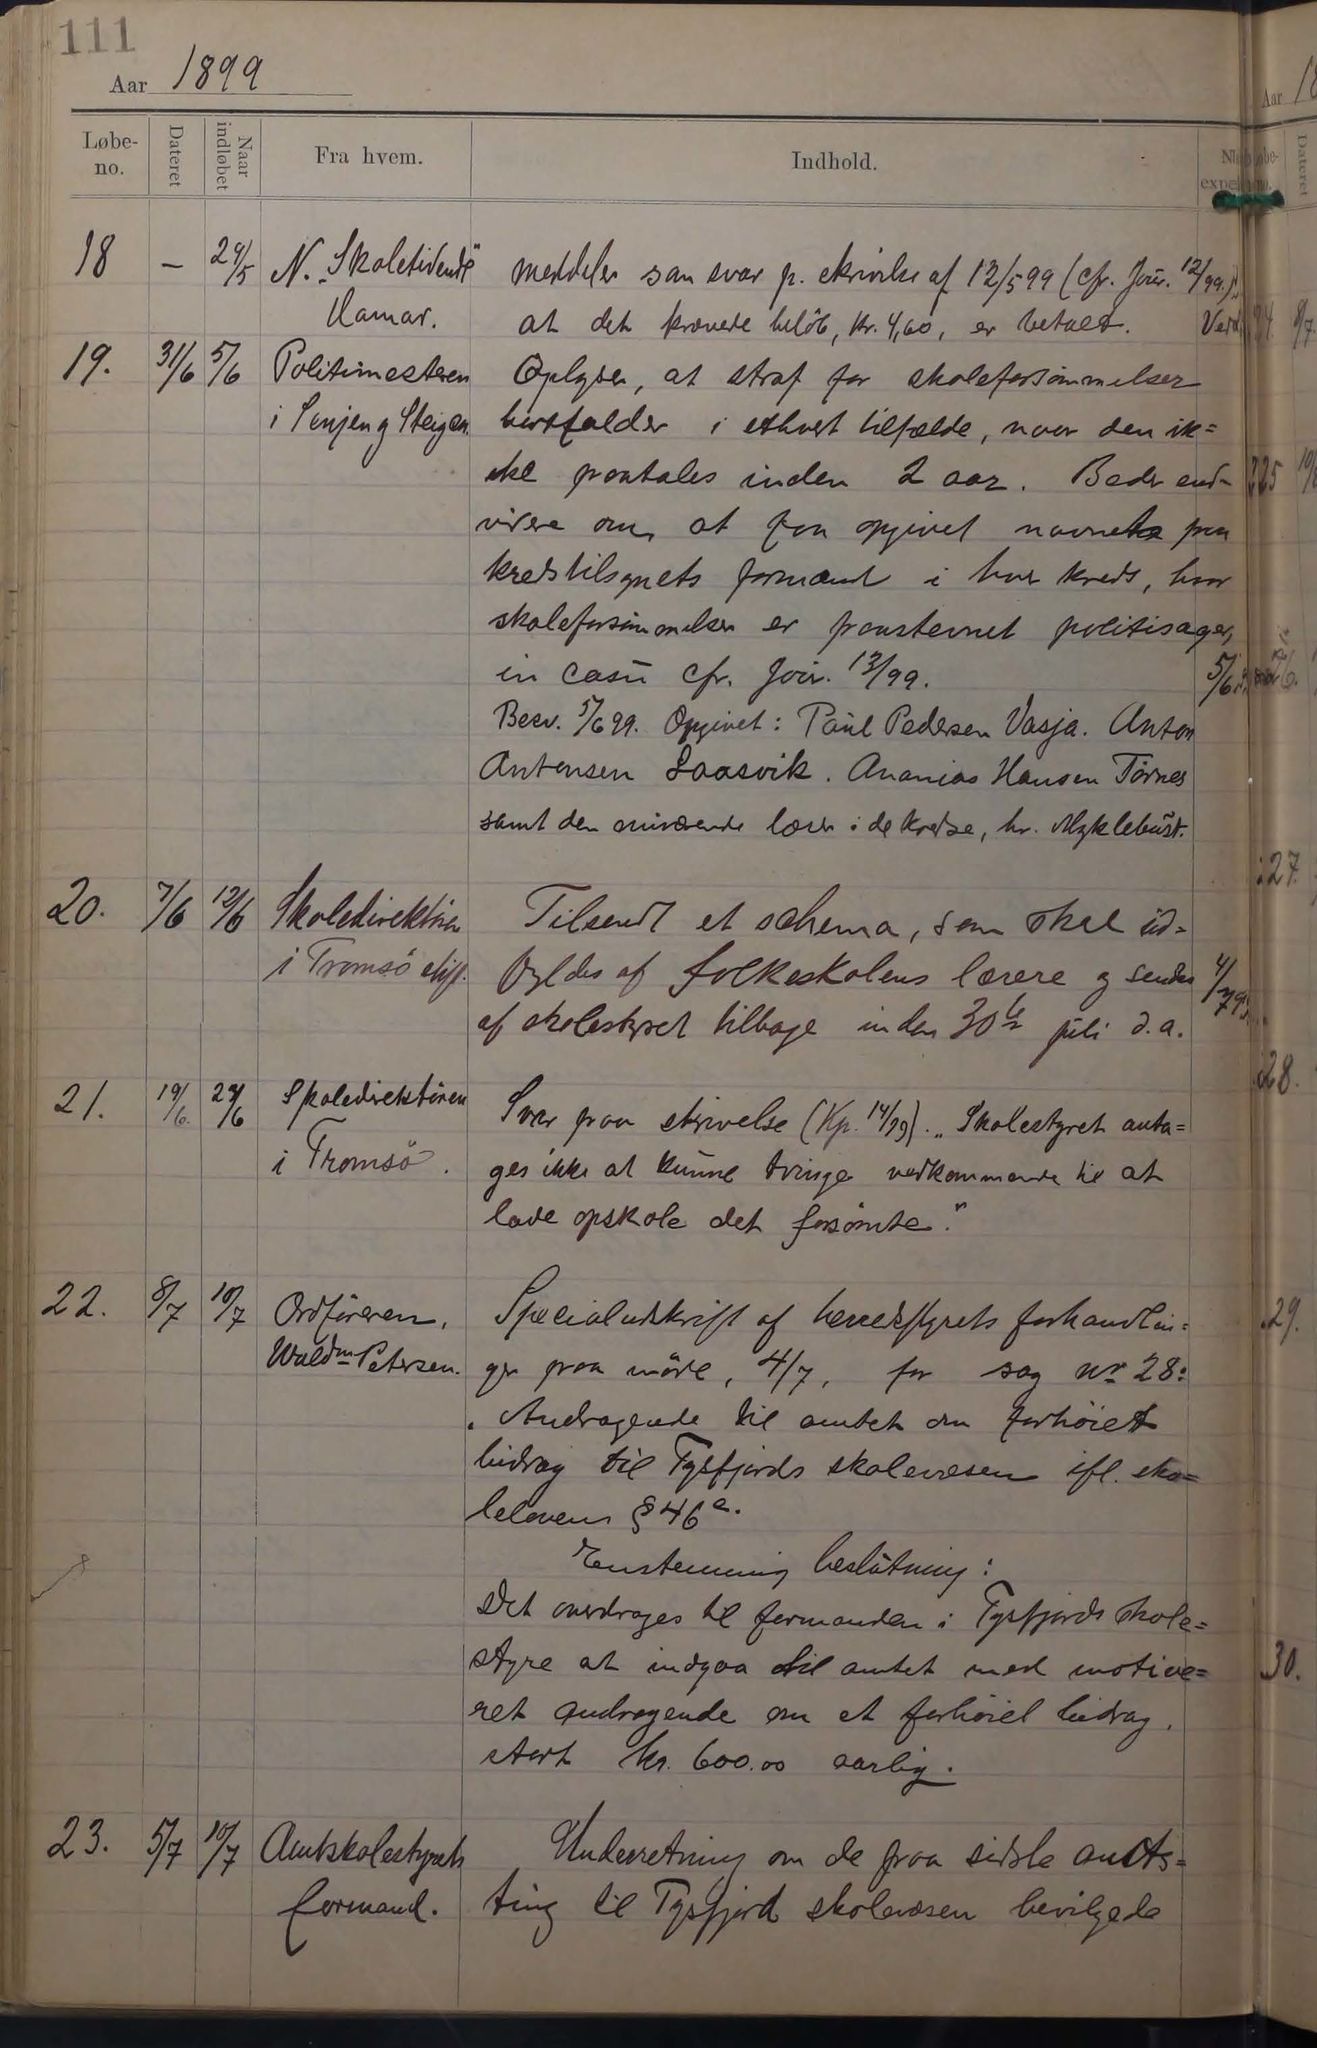 111
Aar 1899
Løbe-no. Dateret Naar indløbet Fra hvem. Indhold.
18 – 29/5 N. "Skoletidende" meddeler som svar p. skrivelse af 12/5 99 (cfr. Jour. 12/99.),
Hamar. at det krævede beløb, kr. 4,60, er betalt.
19. 31/6 5/6 Politimesteren Oplyser, at straf for skoleforsømmelser
i Senjen og Steigen. bortfalder i ethvert tilfælde, naar den ik=
ke paatales inden 2 aar. Beder end=
videre om at faa opgivet navnet paa
kredstilsynets formand i hver kreds, hvor
skoleforsømmelser er paastevnet politisager,
in casu cfr. Jour. 13/99. 5/6
Besv. 5/6 99. Opgivet: Paul Pedersen Vasja. Anton
Antonsen Laasvik. Ananias Hansen Tørnes
samt den nuværende lærer i de kredse, hr. Myklebust.
20. 7/6 12/6 Skoledirektøren Tilsendt et schema, som skal ud=
i Tromsö stift. fyldes af folkeskolens lærere og sendes
af skolestyret tilbage inden 30te juli d.a.
21. 19/6. 24/6 Skoledirektören Svar paa skrivelse (Kp. 14/99). „Skolestyret anta=
i Tromsö. ges ikke at kunne tvinge vedkommende til at
lade opskole det forsömte."
22. 8/7 10/7 Ordföreren, Specialudskrift af herredsstyrets forhandlin=
Waldm Petersen. ger paa möde, 4/7, for sag nr 28:
„Andragende til amtet om forhöiet
bidrag til Tysfjords skolevæsen ifl. sko=
lelovens § 46 a.
Enstemmig beslutning:
Det overdrages til formanden i Tysfjords skole=
styre at indgaa til amtet med motive=
ret andragende om et forhöiet bidrag,
stort kr. 600.00 aarlig.
23. 5/7 10/7 Amtskolestyrets Underretning om de paa sidste amts=
formand. ting til Tysfjord skolevæsen bevilgede
27.
28.
29.
30.